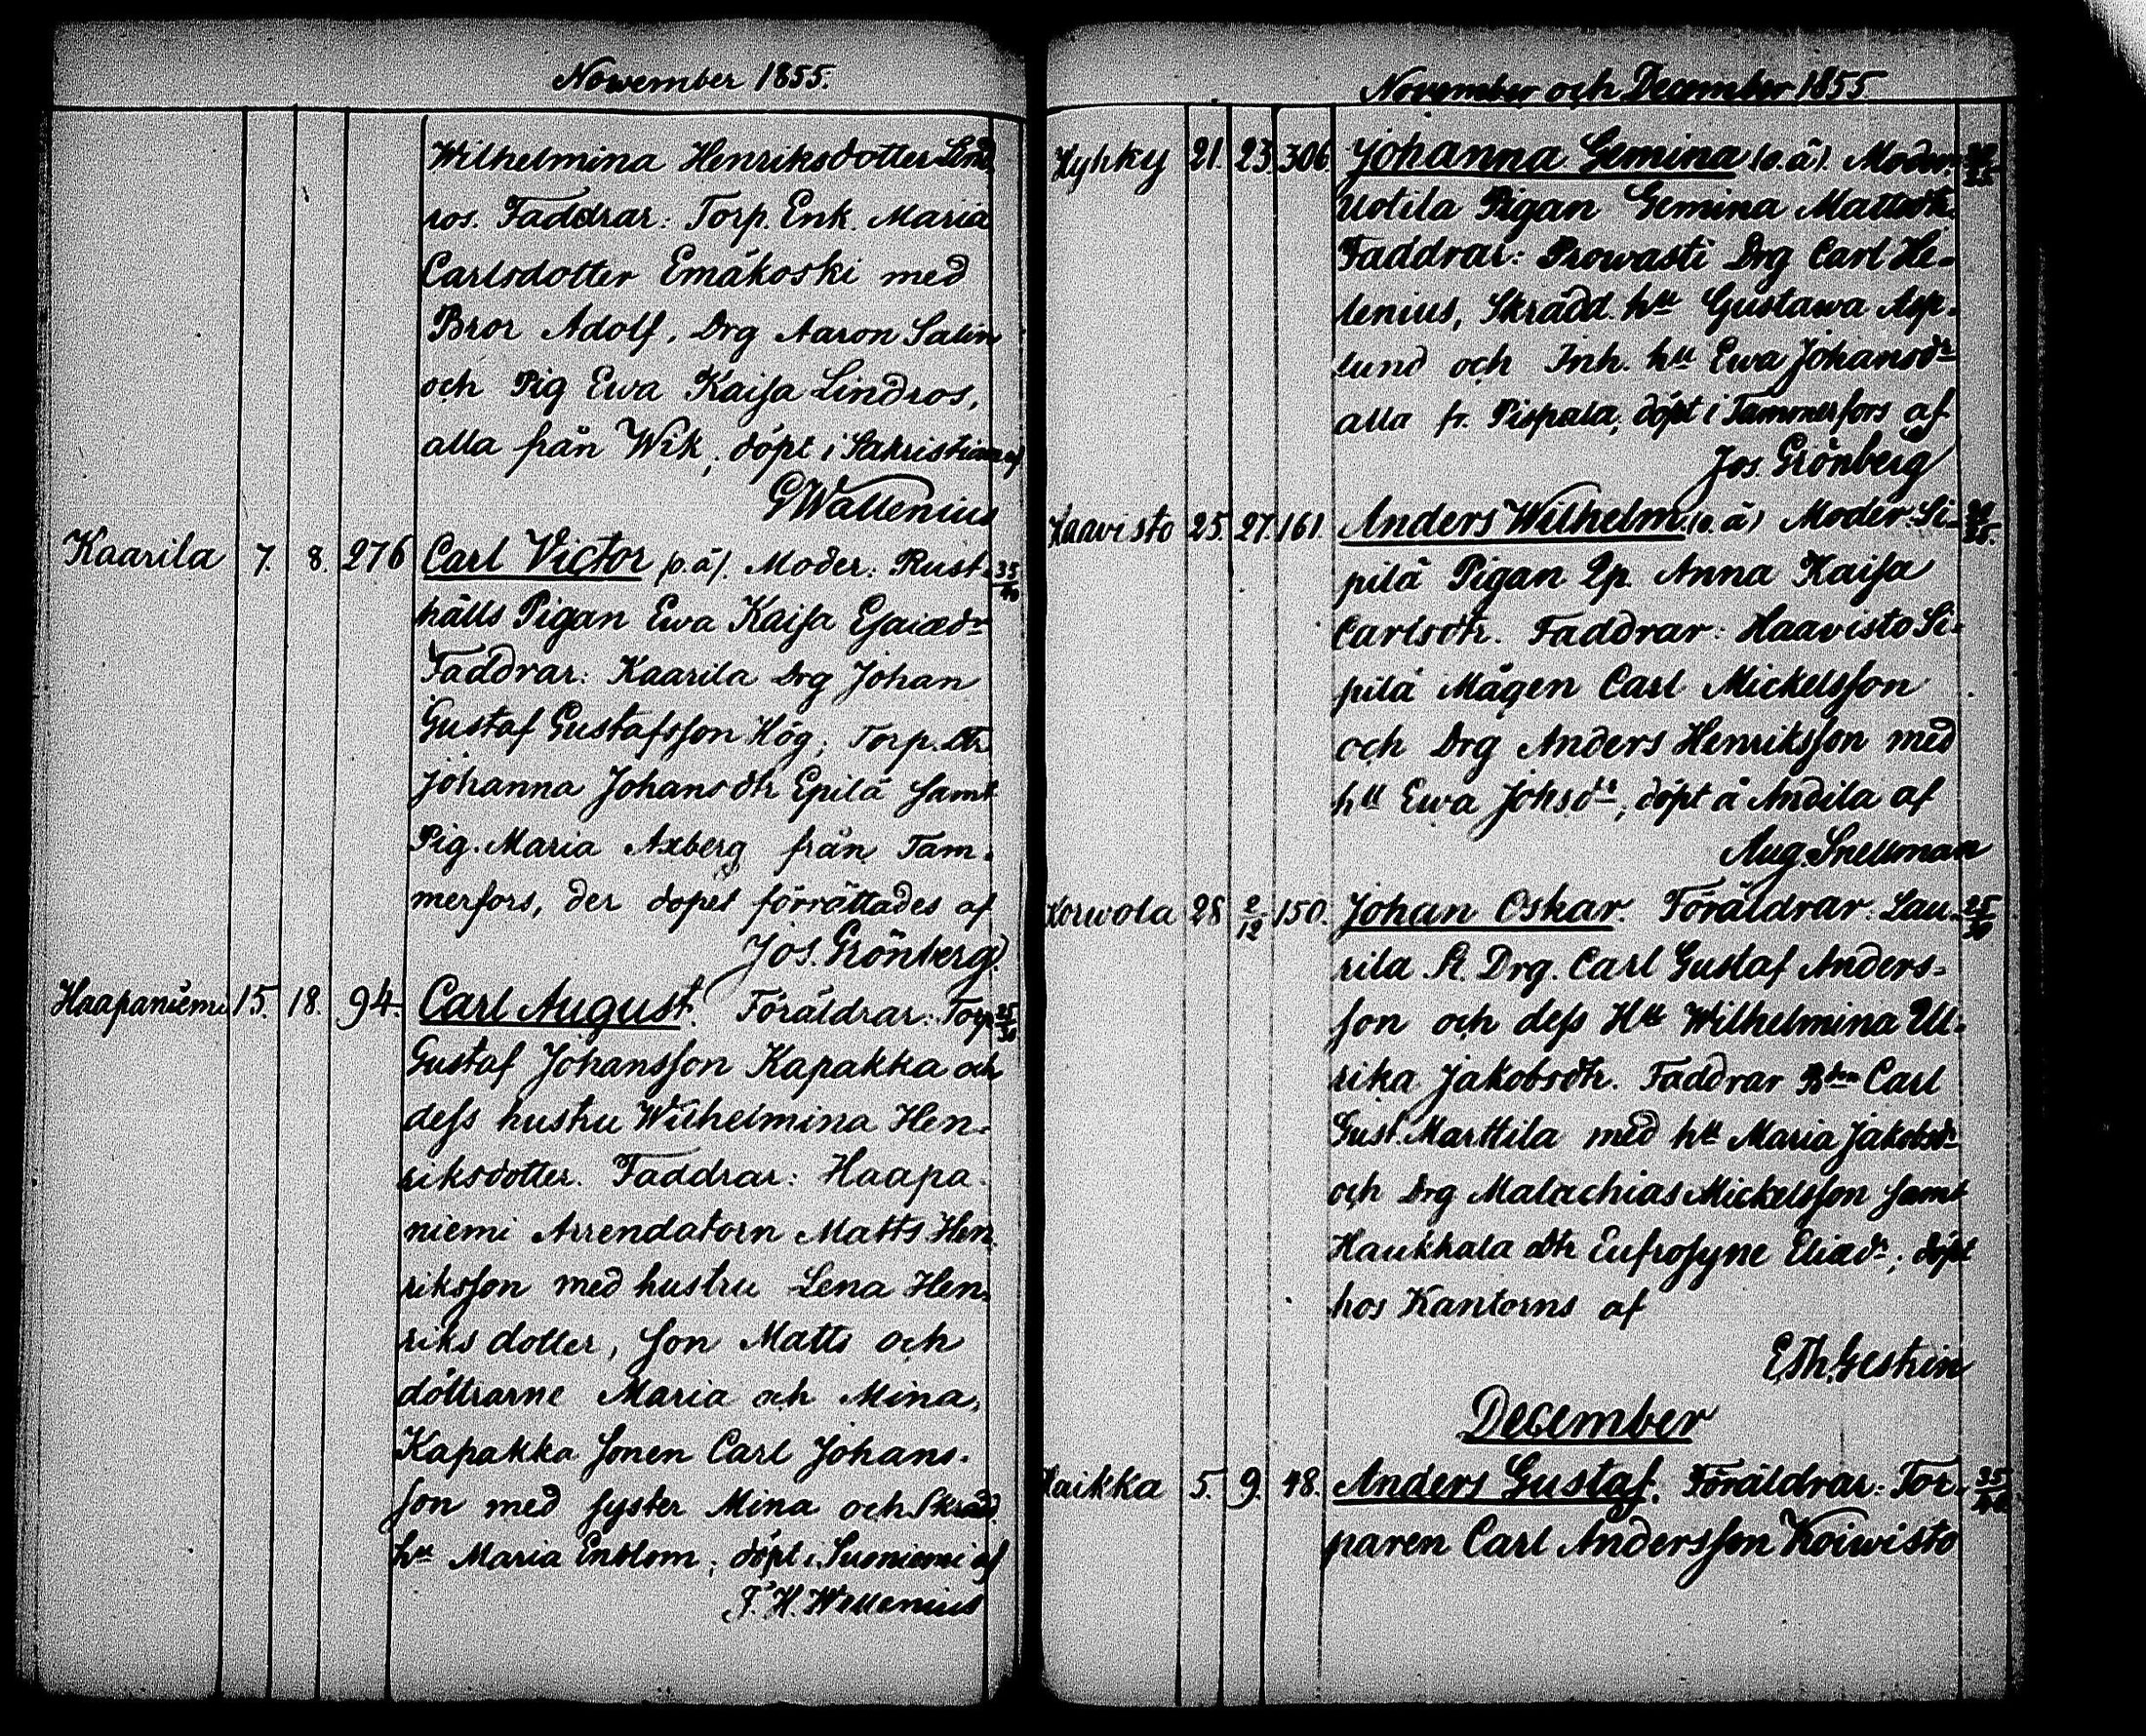 November 1855.
Wilhelmina Henriksdotter Lind
ros. Faddrar: Torp. Enk. Maria
Carlsdotter Emäkoski med
Bror Adolf, Drg Aaron Salin
och Pig Ewa Kaisa Lindros,
alla från Wik; döpt i Sakristian af
G Wallenius
Kaarila 7. 8. 276 Carl Victor (o.ä). Moder: Rust- 35/40
hålls Pigan Ewa Kaisa Esaiædr
Faddrar: Kaarila Drg Johan
Gustaf Gustafsson Hög; Torp. Dtr
Johanna Johansdtr Epilä samt
Pig. Maria Axberg från Tam-
merfors, der dopet förrättades af
Jos. Grönberg.
Haapaniemi 15. 18. 94. Carl August. Föräldrar: Torp 25/30
Gustaf Johansson Kapakka och
dess hustru Wilhelmina Hen-
riksdotter. Faddrar: Haapa-
niemi Arrendatorn Matts Hen-
riksson med hustru Lena Hen-
riksdotter, son Matts och
döttrarne Maria och Mina,
Kapakka sonen Carl Johans-
son med syster Mina och Skräd.
hu Maria Enblom; döpt i Suoniemi af
F. H. Wallenius
November och December 1855
Hyhky 21. 23. 306. Johanna Gemina (o.ä). Moder:
Uotila Pigan Gemina Mattsdtr.
Faddrar: Prowasti Drg Carl He-
lenius, Skrädd. hu Gustawa Asp-
lund och Inh. hu Ewa Johansdr
alla fr. Pispala; döpt i Tammerfors af
Jos. Grönberg
Haavisto 25. 27. 161. Anders Wilhelm (o.ä) Moder: Si-
pilä Pigan Anna Kaisa
Carlsdtr. Faddrar: Haavisto Si-
pilä Mågen Carl Mickelsson
och Drg Anders Henriksson med
hu Ewa Johsdr; döpt å Andila af
Aug. Snellman
Korwola 28 2/12 150. Johan Oskar. Föräldrar: Lau- 25/30
rila St. Drg. Carl Gustaf Anders-
son och dess Hu Wilhelmina Ul-
rika Jakobsdtr. Faddrar Bdn Carl
Gust. Marttila med hu Maria Jakobsdr
och Drg Malachias Mickelsson samt
Haukkala dtr Eufrosyne Eliædr; döpt
hos Kantorns af
E.Th. Gestrin
December
Haikka 5. 9. 48. Anders Gustaf. Föräldrar: Tor-
paren Carl Andersson Koiwisto